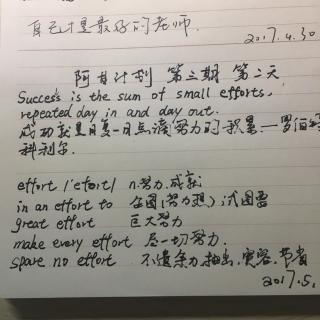 自己才是最好的老师.
2017.4.30
阿甘计划 第三期 第二天
Success is the sum of small efforts,
repeated day in and day out.
成功就是日复一日点滴努力的积累.—罗伯特
科利尔.
effort /'efərt/ n.努力.成就
in an effort to 企图(努力想)试图要
great effort 巨大努力
make every effort 尽一切努力.
spare no effort 不遗余力 抽出,宽容,节省
2017.5.